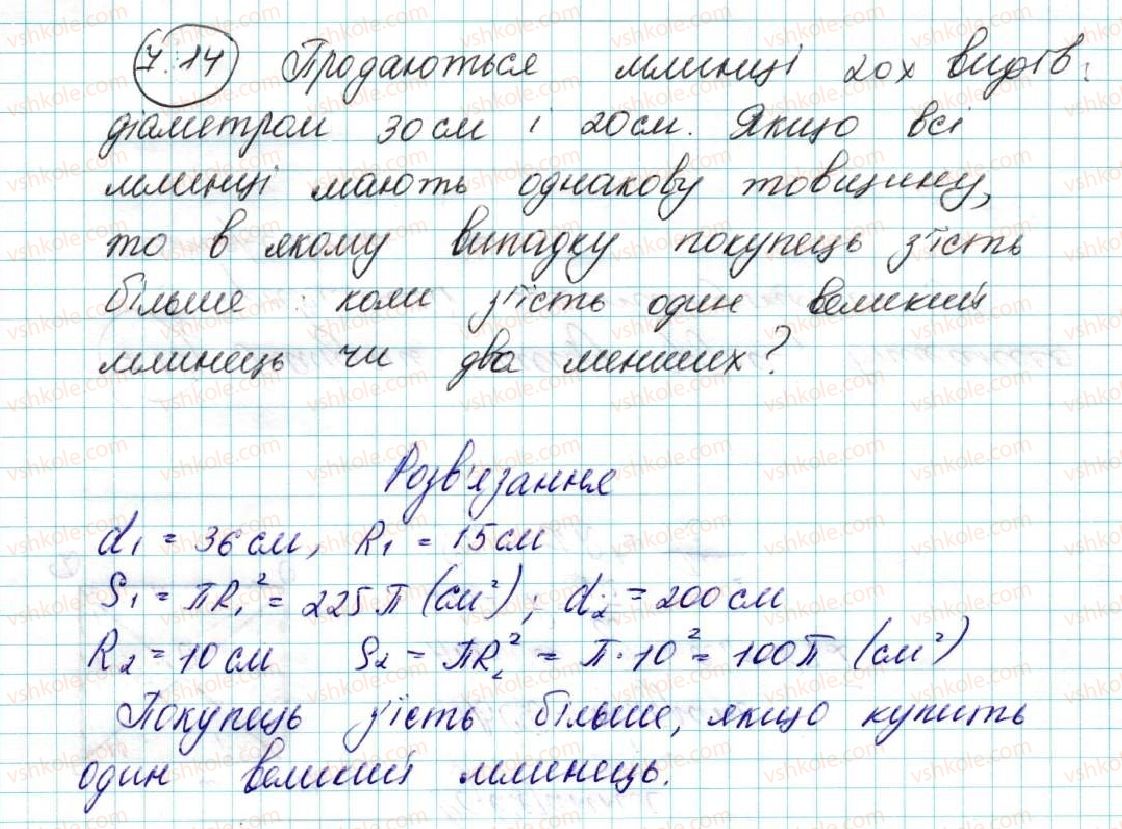 7.14 Продаються млинці 2ох видів:
діаметром 30 см і 20 см. Якщо всі
млинці мають однакову товщину,
то в якому випадку покупець з'їсть
більше : коли з'їсть один великий
млинець чи два менших?
Розв'язання
d₁ = 36 см, R₁ = 15 см
S₁ = πR₁² = 225π (см²); d₂ = 200 см
R₂ = 10 см S₂ = πR₂² = π·10² = 100π (см²)
Покупець з'їсть більше, якщо купить
один великий млинець.